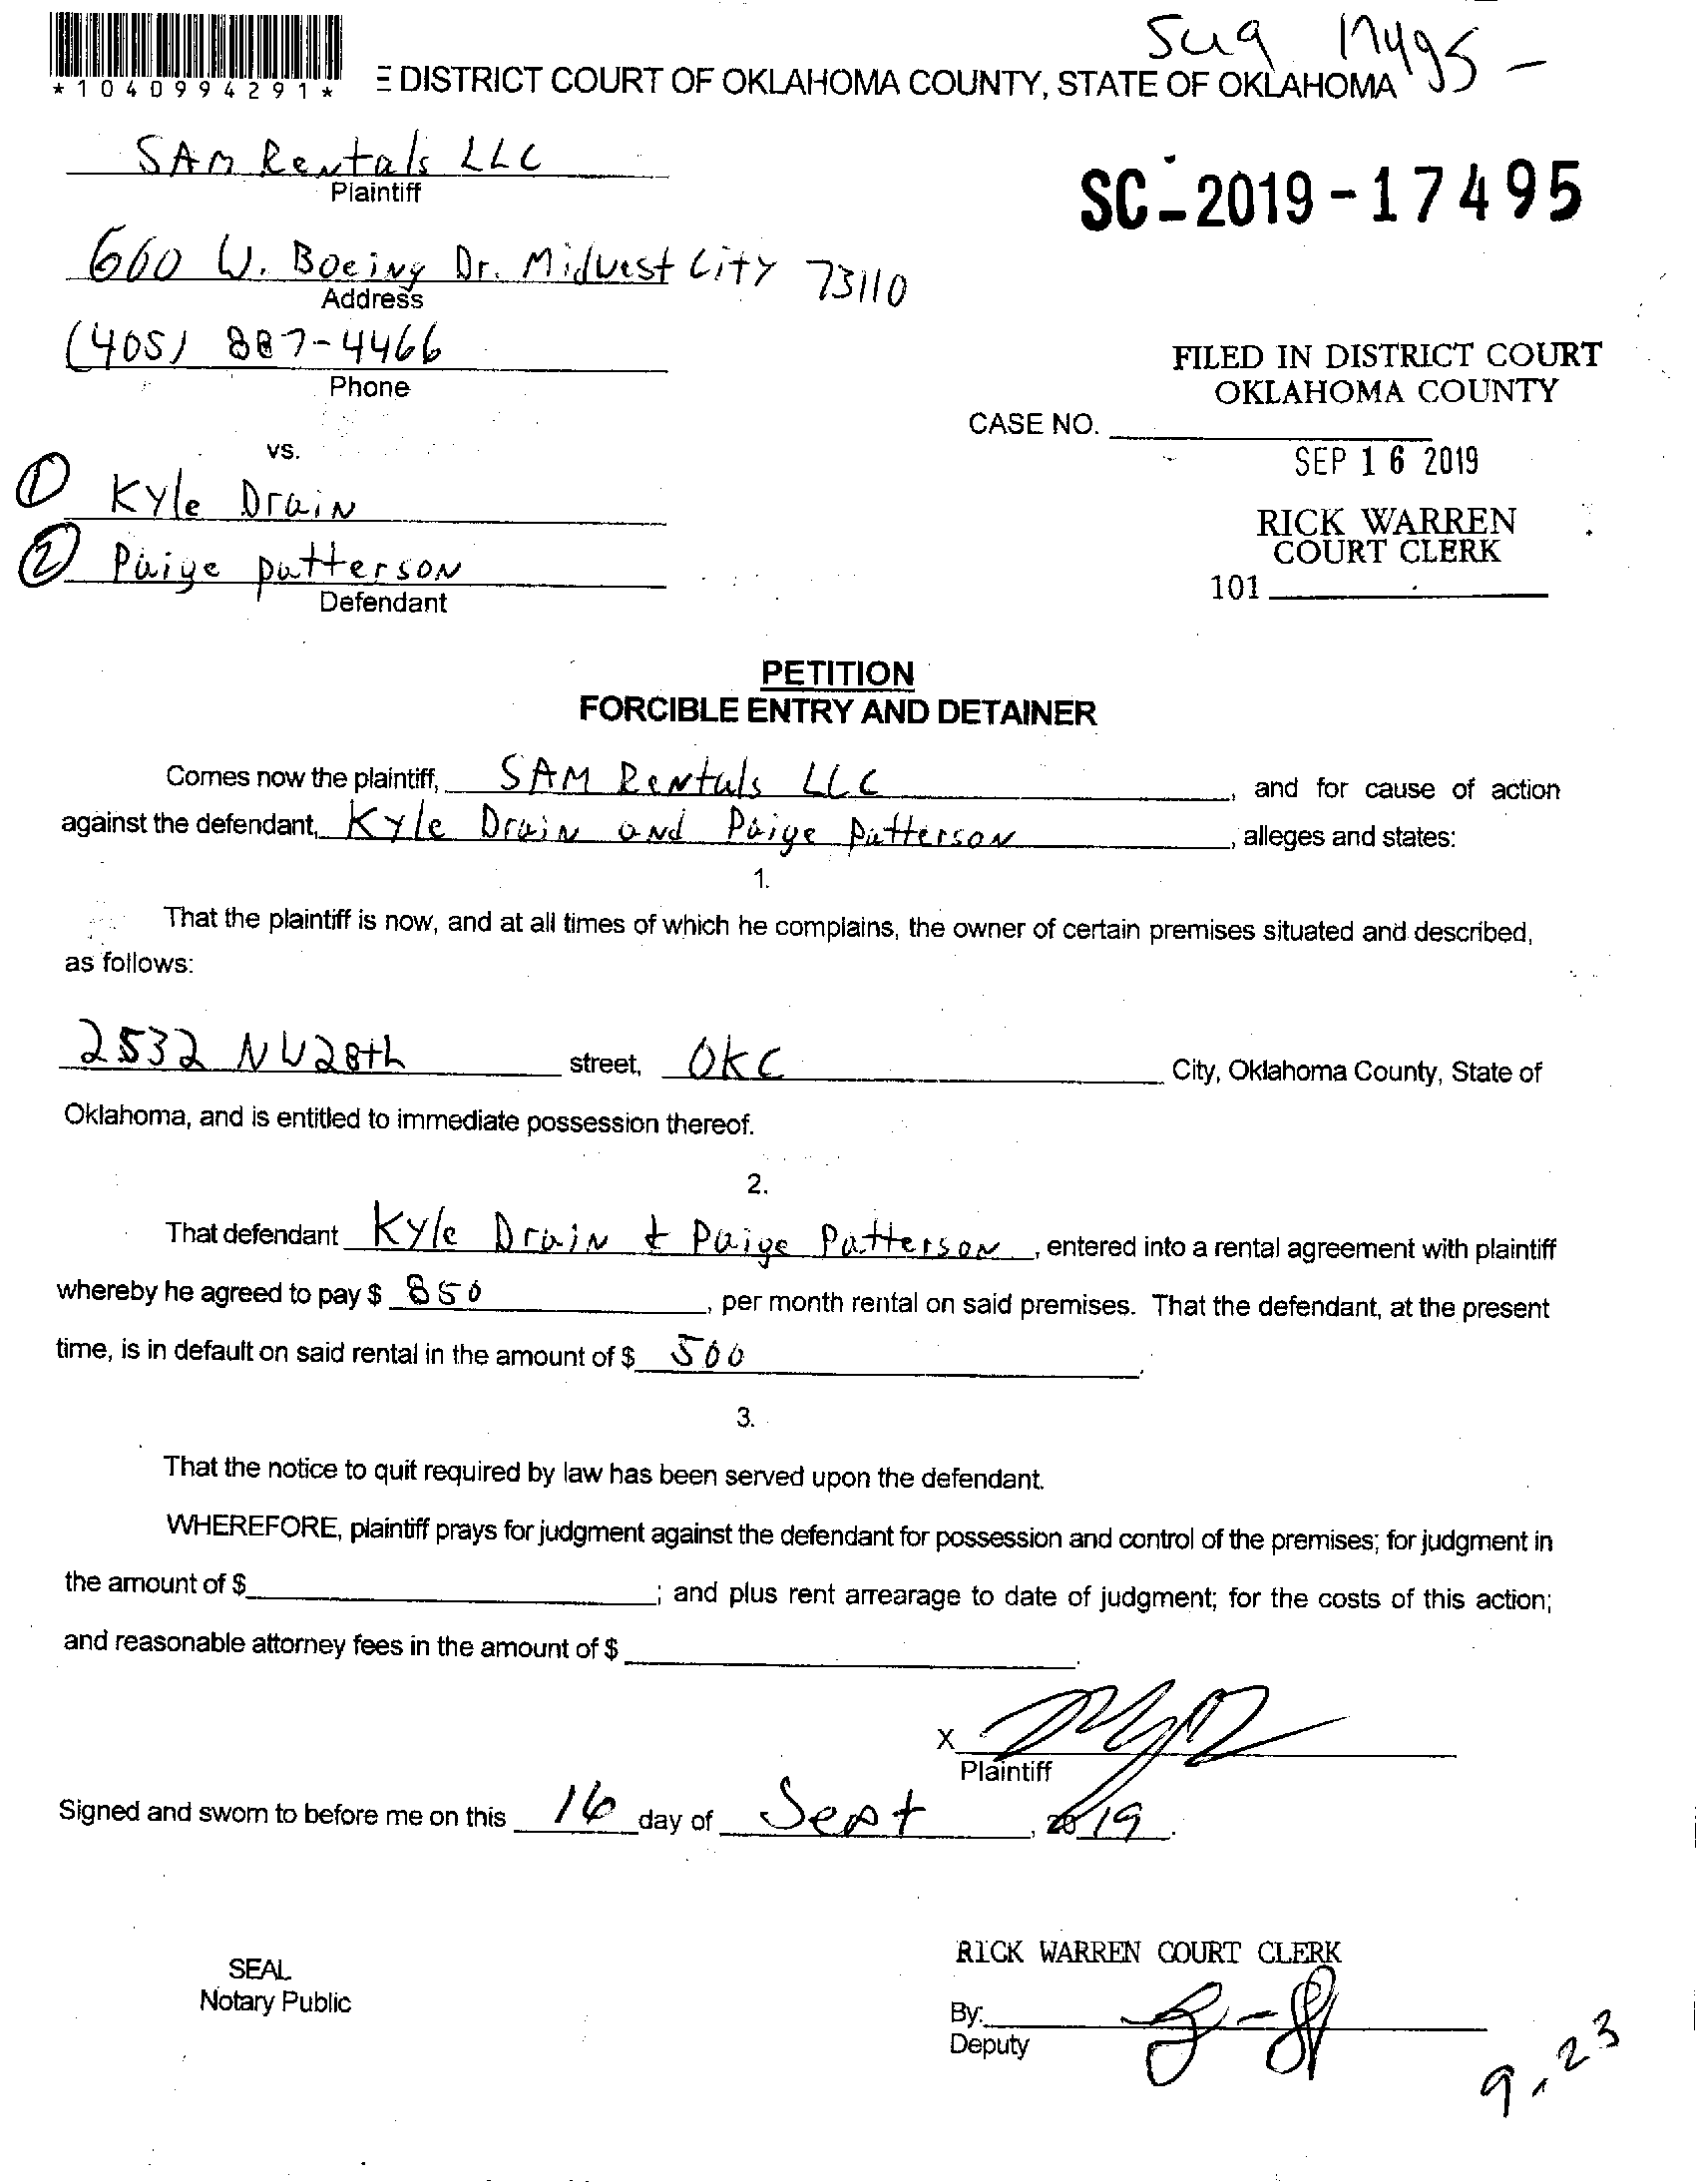 *1040994291*
E DISTRICT COURT OF OKLAHOMA COUNTY, STATE OF OKLAHOMA
SAM Rentals LLC
Plaintiff
SC-2019-17495
660 W. Boeing Dr. Midwest City 73110
Address
(405) 887-4466
Phone
FILED IN DISTRICT COURT
OKLAHOMA COUNTY
CASE NO.
vs.
SEP 16 2019
1 Kyle Drain
RICK WARREN
COURT CLERK
2 Paige Patterson
Defendant
101
PETITION
FORCIBLE ENTRY AND DETAINER
Comes now the plaintiff, SAM Rentals LLC, and for cause of action
against the defendant, Kyle Drain and Paige Patterson, alleges and states:
1.
That the plaintiff is now, and at all times of which he complains, the owner of certain premises situated and described,
as follows:
2532 NW 28th street, OKC City, Oklahoma County, State of
Oklahoma, and is entitled to immediate possession thereof.
2.
That defendant Kyle Drain & Paige Patterson, entered into a rental agreement with plaintiff
whereby he agreed to pay $ 850, per month rental on said premises. That the defendant, at the present
time, is in default on said rental in the amount of $ 500.
3.
That the notice to quit required by law has been served upon the defendant.
WHEREFORE, plaintiff prays for judgment against the defendant for possession and control of the premises; for judgment in
the amount of $ ; and plus rent arrearage to date of judgment; for the costs of this action;
and reasonable attorney fees in the amount of $ .
X
Plaintiff
Signed and sworn to before me on this 16 day of Sept, 2019.
RICK WARREN COURT CLERK
SEAL
Notary Public
By:
Deputy
9.23